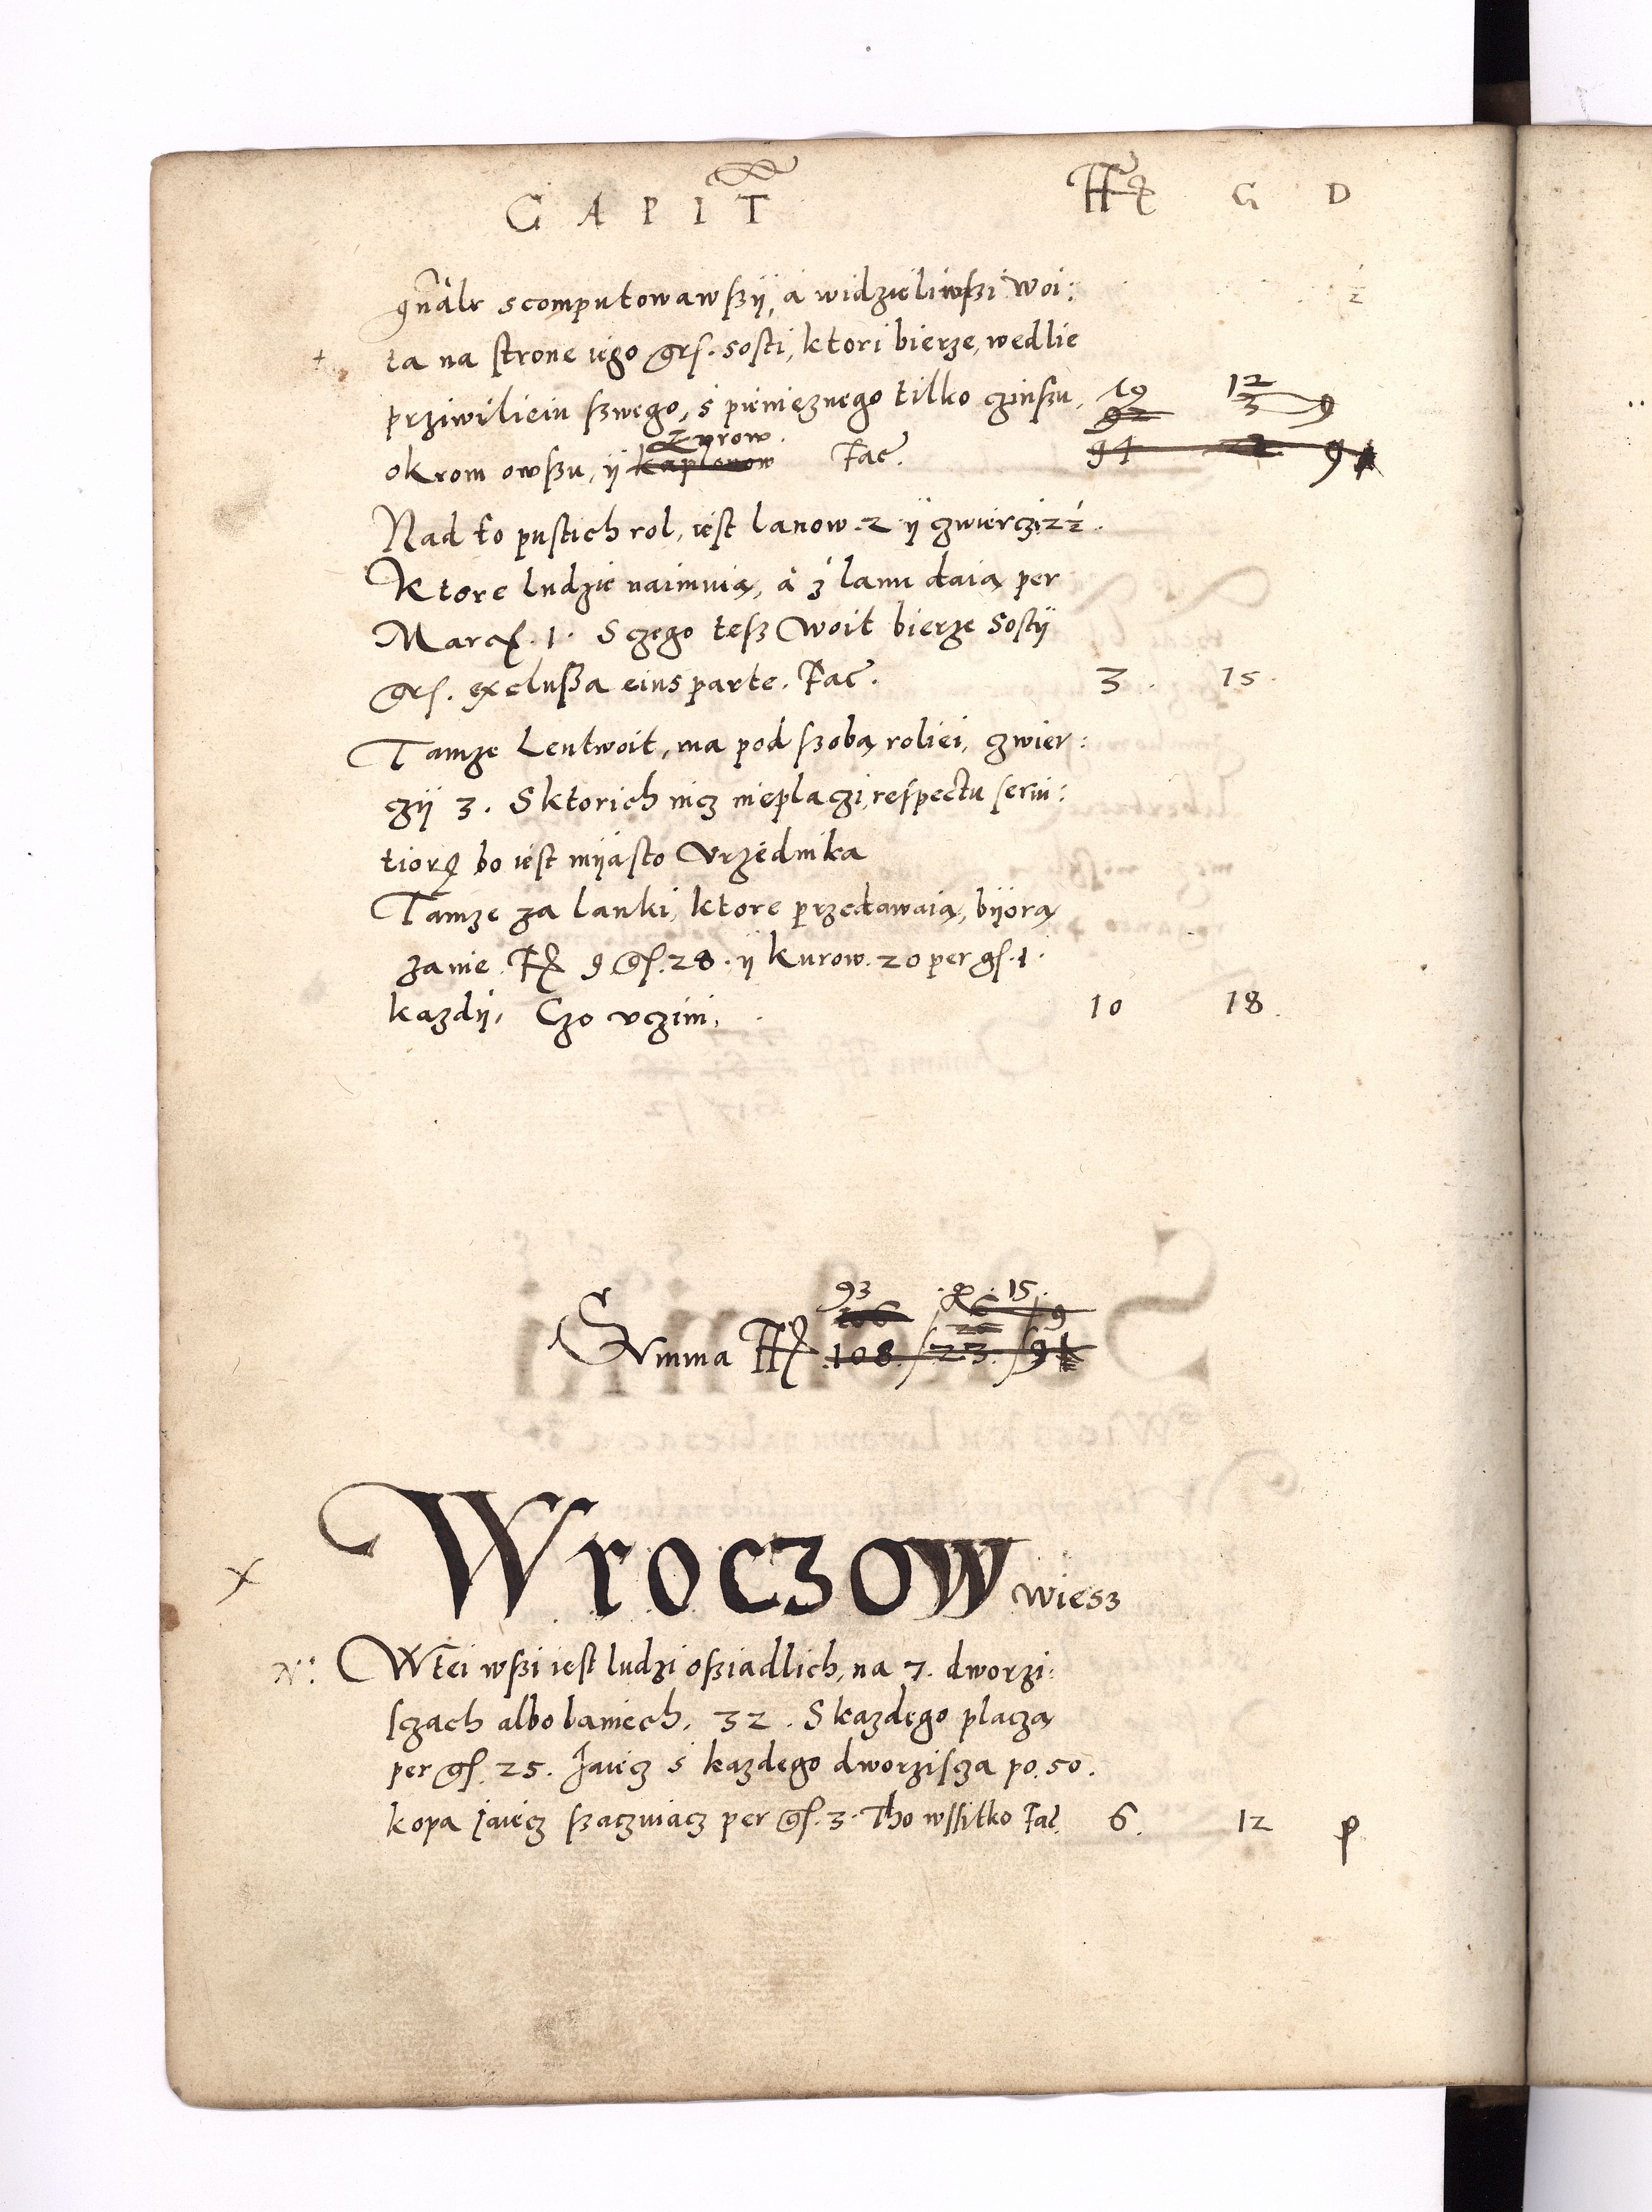 CAPIT Fl G D
gnalr scomputowawszÿ, a widzieliwszi woi:
ta na strone iego grs. sosti, ktori bierze, wedlie
prziwilieiu szwego, s pienięznego tilko czinszu, 12 9
okrom owszu, ÿ kaplonow kurow Fac. 94
Nad to pustich rol, iest lanow. 2 ÿ czwierczi 2 ½.
Ktore ludzie naimuią, a z lanu daią per
Marcas. 1. Sczego tesz Woit bierze Sostÿ
grs. exclussa eius parte. Fac. 3. 15.
Tamze Lentwoit, ma pod szobą roliei, czwier:
czÿ 3. Sktorich nicz nieplaczi, respectu serui:
tiorum bo iest mÿasto Vrzędnika
Tamze za lanki, ktore przedawaią, bÿorą
zanie Fl 9 gs. 28. ÿ kurow. 20 per gs. 1.
kazdÿ, Czo vczini, 10 18.
93 . 15.
106 6 9
Summa Fl 108. / 23. / 9
Wroczow wiesz
x
N: Wtei wszi iest ludzi osziadlich, na 7. dworzi:
sczach albo laniech. 32. Skazdego placzą
per gs. 25. Jaiecz s kazdego dworzisza po. 50.
kopa jaiecz szaczuiacz per gs. 3. Tho wssitko Fac. 6. 12 p